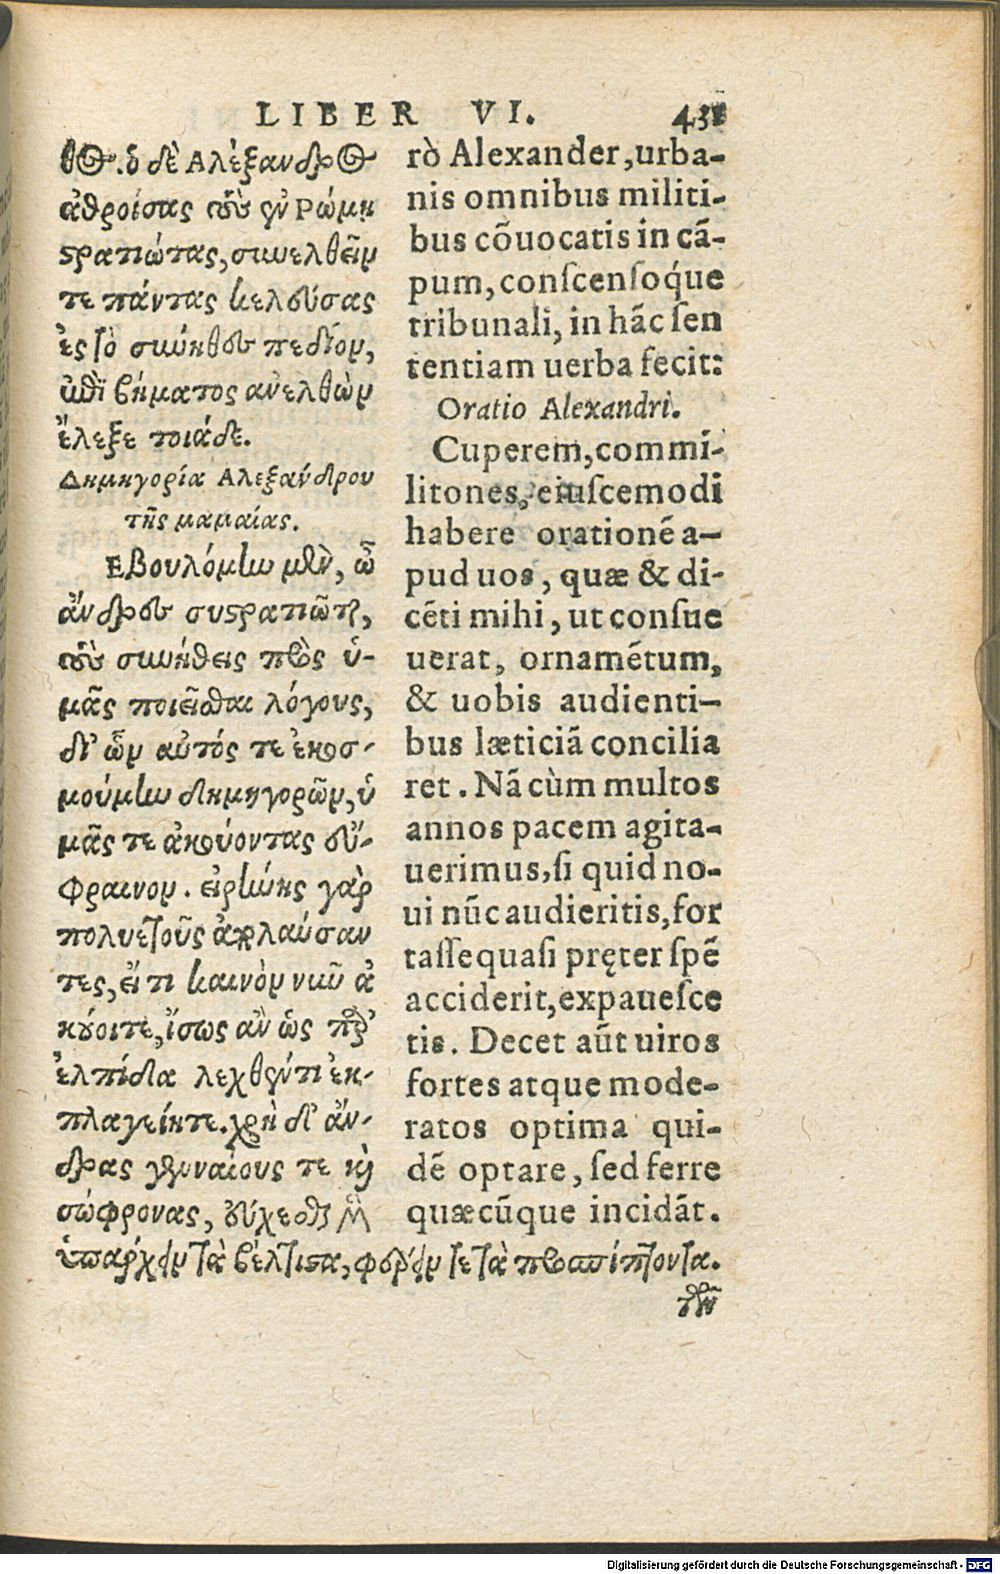 LIBER VI. 431
θος. ὁ δὲ Αλέξανδρος
ἀθροίσας τοὺς ἐν Ρώμῃ
στρατιώτας, συνελθεῖν
τε πάντας κελεύσας
ἐς τὸ σύνηθες πεδίον,
ἐπὶ βήματος ἀνελθὼν
ἔλεξε τοιάδε.
Δημηγορία Αλεξάνδρου
τῆς μαμαίας.
Εβουλόμην μὲν, ὦ
ἄνδρες συστρατιῶται,
τοὺς συνήθεις πρὸς ὑ-
μᾶς ποιεῖσθαι λόγους,
δι' ὧν αὐτός τε ἐκοσ-
μούμην δημηγορῶν, ὑ
μᾶς τε ἀκούοντας εὔ-
φραινον. εἰρήνης γὰρ
πολυετοῦς ἀπολαύσαν
τες, εἴ τι καινὸν νῦν ἀ
κούοιτε, ἴσως ἂν ὡς παρ'
ἐλπίδα λεχθέντι ἐκ-
πλαγείητε. χρὴ δ' ἄν-
δρας γενναίους τε καὶ
σώφρονας, εὔχεσθαι μὲν
ὑπάρχειν τὰ βέλτιστα, φέρειν τε τὰ προσπίπτοντα.
rò Alexander, urba-
nis omnibus militi-
bus cõuocatis in cã-
pum, conſcenſoq́ue
tribunali, in hãc ſen
tentiam uerba fecit:
Oratio Alexandri.
Cuperem, commi-
litones, eiuſcemodi
habere orationẽ a-
pud uos, quæ & di-
cẽti mihi, ut conſue
uerat, ornamẽtum,
& uobis audienti-
bus læticiã concilia
ret. Nã cùm multos
annos pacem agita-
uerimus, ſi quid no-
ui nũc audieritis, for
taſſe quaſi pręter ſpẽ
acciderit, expaueſce
tis. Decet aũt uiros
fortes atque mode-
ratos optima qui-
dẽ optare, ſed ferre
quæcũque incidãt.
τῶν
Digitalisierung gefördert durch die Deutsche Forschungsgemeinschaft - DFG